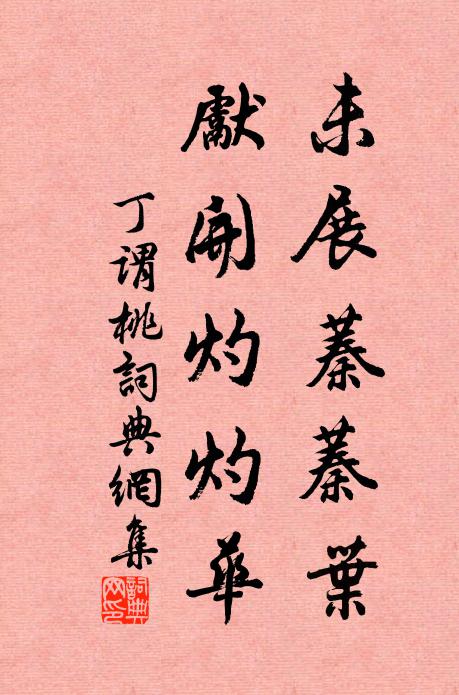 未展蓁蓁葉
獻開灼灼華
丁谓桃詞典網集
詞典网印